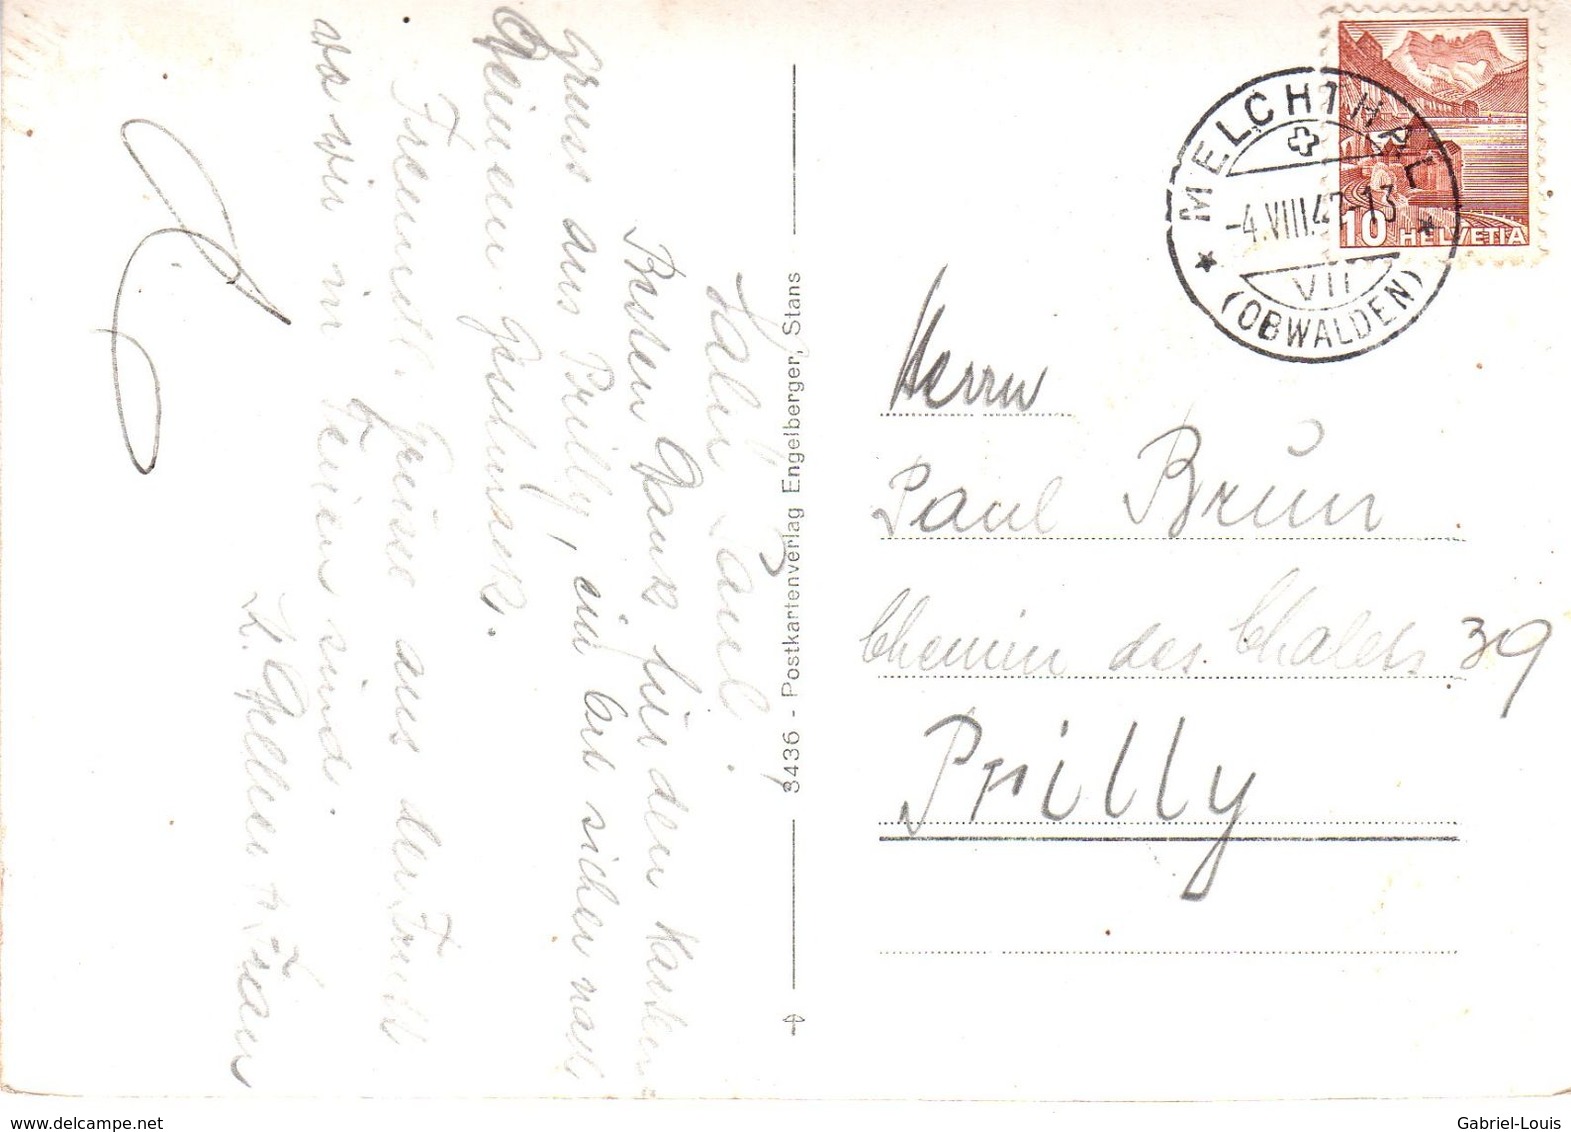 Lieber Paul!
Besten Dank für den Karten
gruss aus Prilly, ein bar sicher nach
Deinem Geschmack.
Freundl. Grüsse aus der Frutt
wo wir in Ferien sind.
Frau
3436 - Postkartenverlag Engelberger, Stans
MELCHTHAL
-4.VIII.47-13
VII
(OBWALDEN)
10 HELVETIA
Herrn
Paul Brun
Chemin des Chalets 39
Prilly
www.delcampe.net
Gabriel-Louis